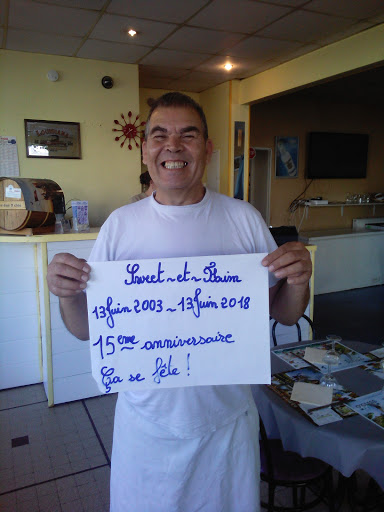 Sweet~et~Pain
13 Juin 2003 ~ 13 Juin 2018
15ème anniversaire
Ça se fête !